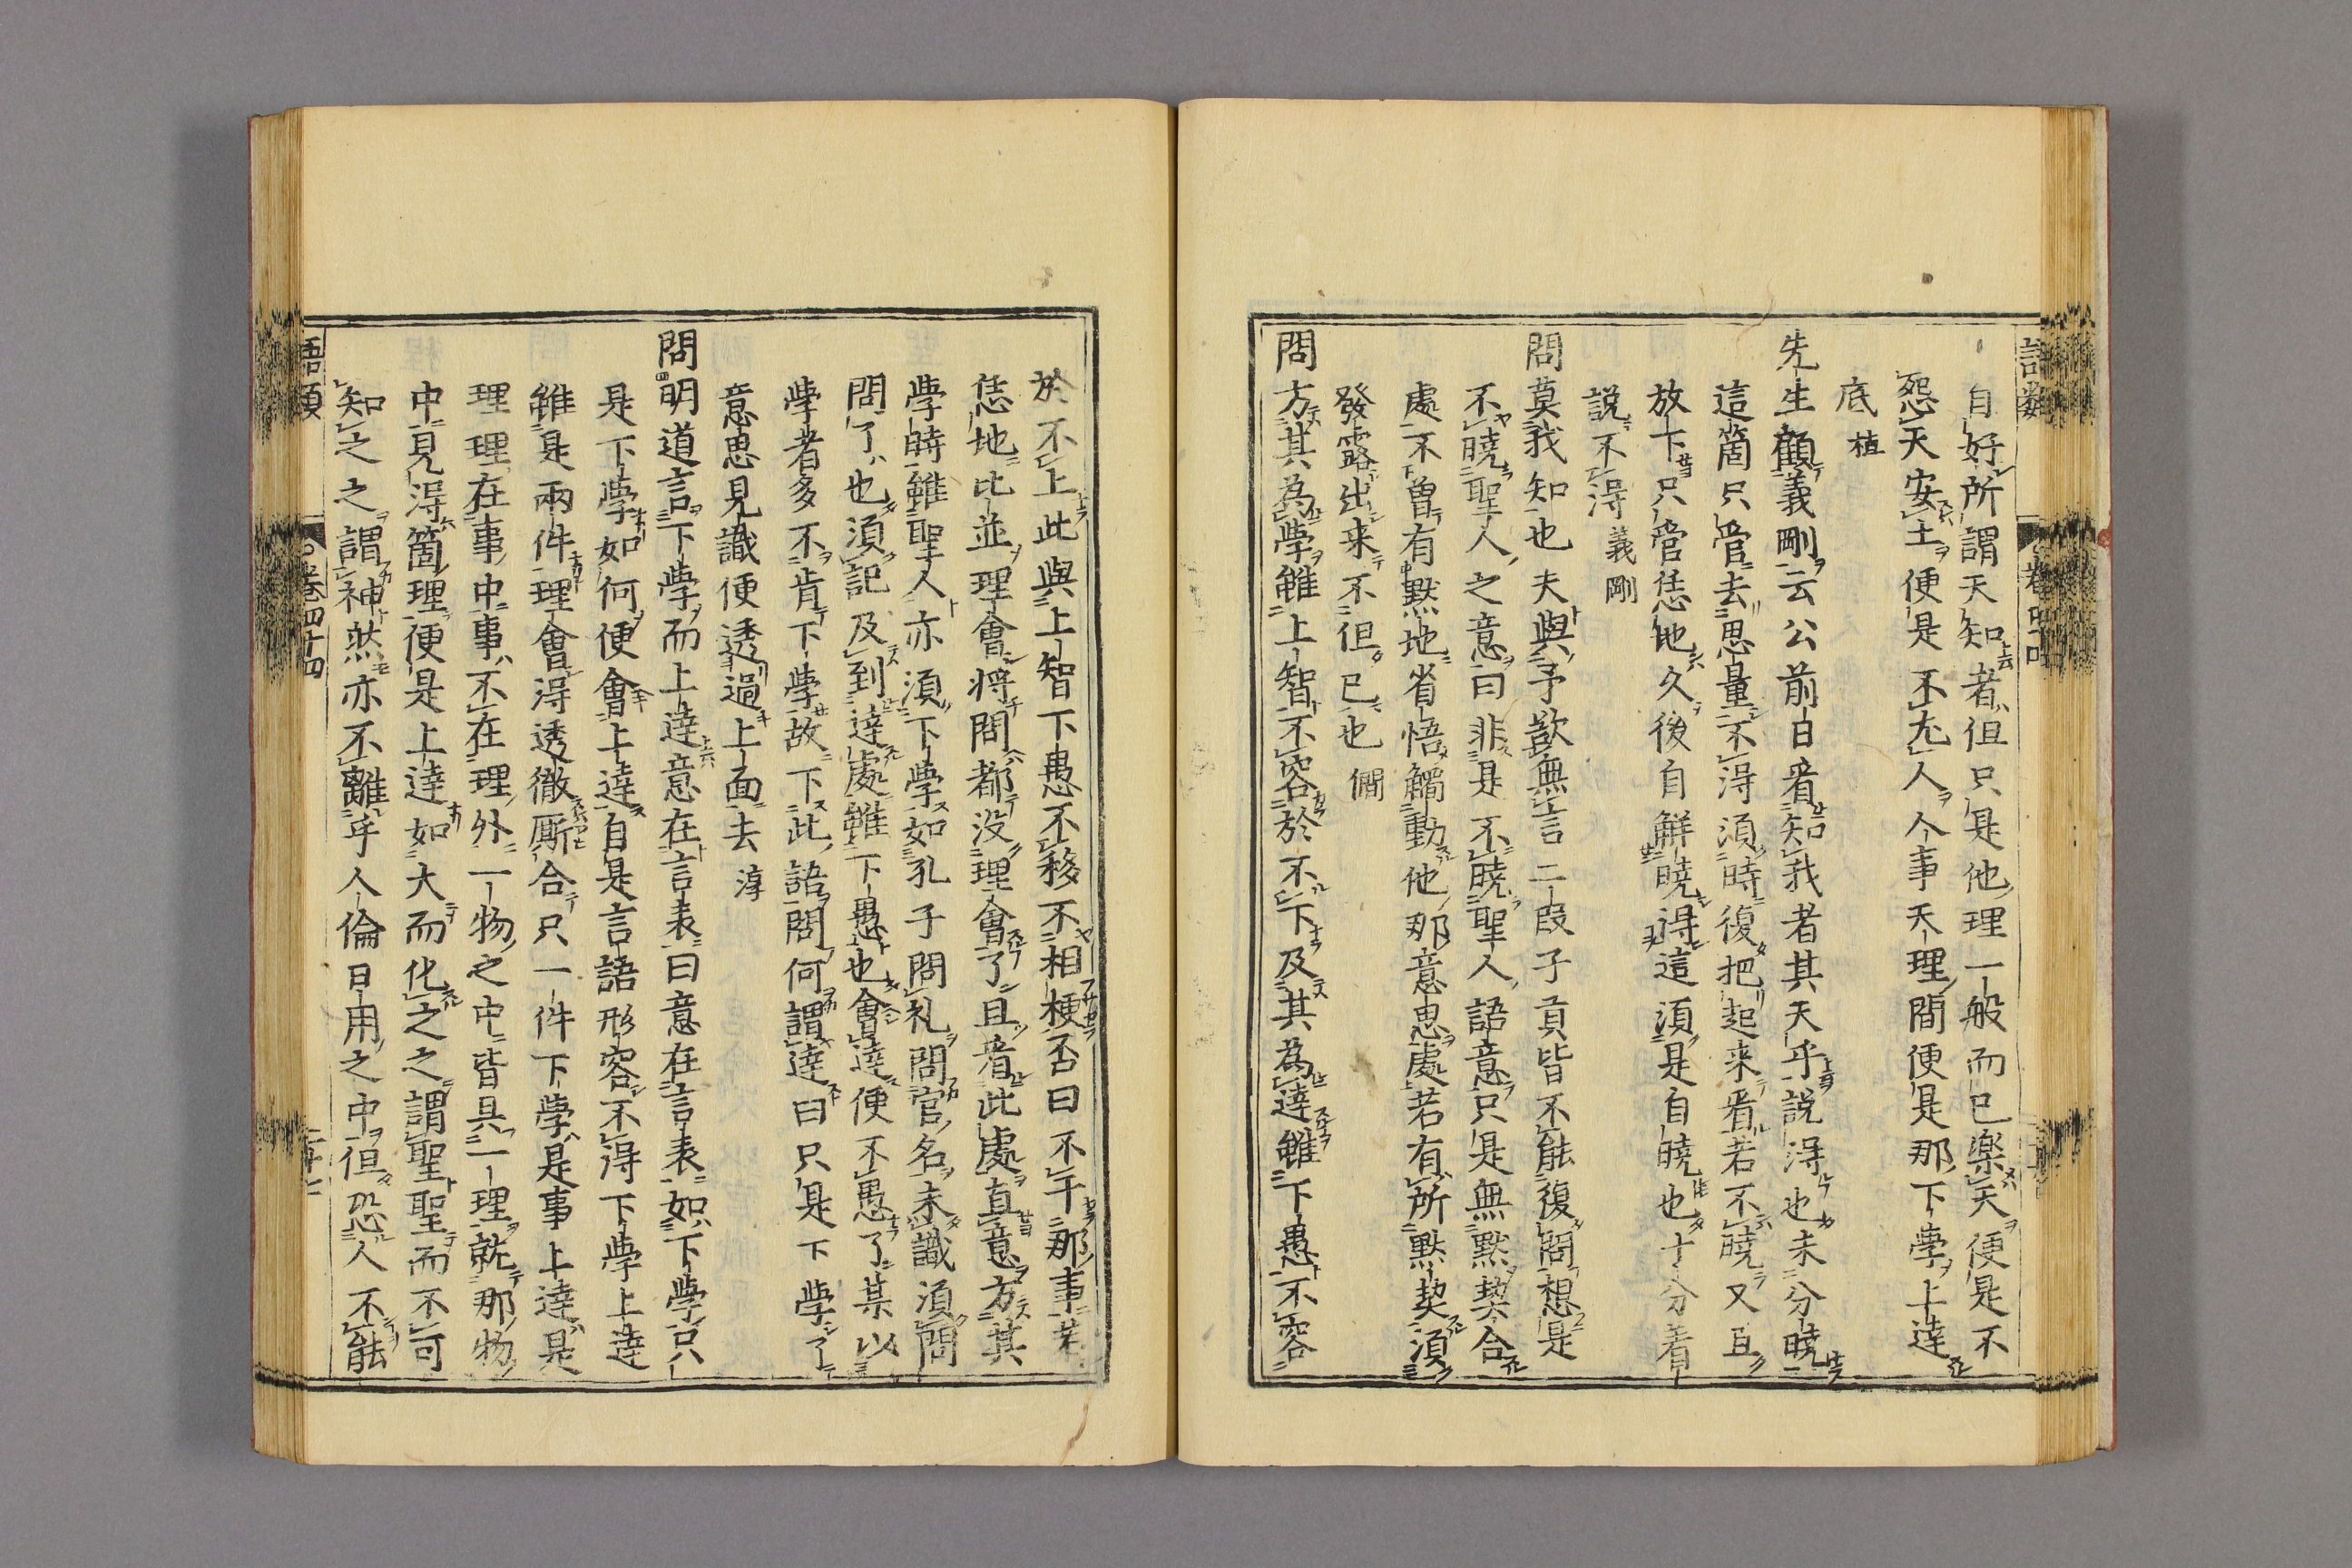 自好所謂天知者但只是他理一般而已楽天便是不
怨天安土便是不尤人人事天理間便是那下學上達
底 植
先生顧義剛云公前日看知我者其天乎說得也未分曉
這箇只管去思量不得須時復把起来看若不曉又且
放下只管恁地久後自解曉得這須是自曉也十分着
說不得 義剛
問莫我知也夫與予欲無言二段子貢皆不能復問想是
不曉聖人之意曰非是不曉聖人語意只是無默契合
處不曽有默地省悟觸動他那意思處若有所默契須
發露出来不但已也 僩
問方其為學雖上智不容於不下及其為達雖下愚不容
於不上此與上智下愚不移不相梗否曰不干那事若
恁地比並理會將問都没理會了且看此處直意方其
學時雖聖人亦須下學如孔子問礼問官名未識須問
問了也須記及到達處雖下愚也會達便不愚了某以
學者多不肯下學故下此語問何謂達曰只是下學了
意思見識便透過上面去 淳
問明道言下學而上達意在言表曰意在言表如下學只
是下學如何便會上達自是言語形容不得下學上達
雖是兩件理會得透徹厮合只一件下學是事上達是
理理在事中事不在理外一物之中皆具一理就那物
中見得箇理便是上達如大而化之之謂聖聖而不可
知之之謂神然亦不離乎人倫日用之中但恐人不能
語類
卷四十四